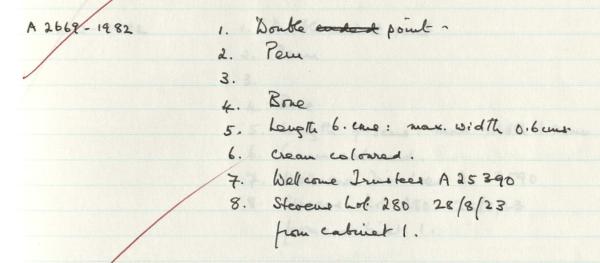 A 2669-1982 1. Double ended point -
2. Peru
3.
4. Bone
5. Length 6. cms: max. width 0.6cms.
6. Cream coloured.
7. Wellcome Trustees A 25390
8. Stevens Lot 280 28/8/23
from cabinet 1.